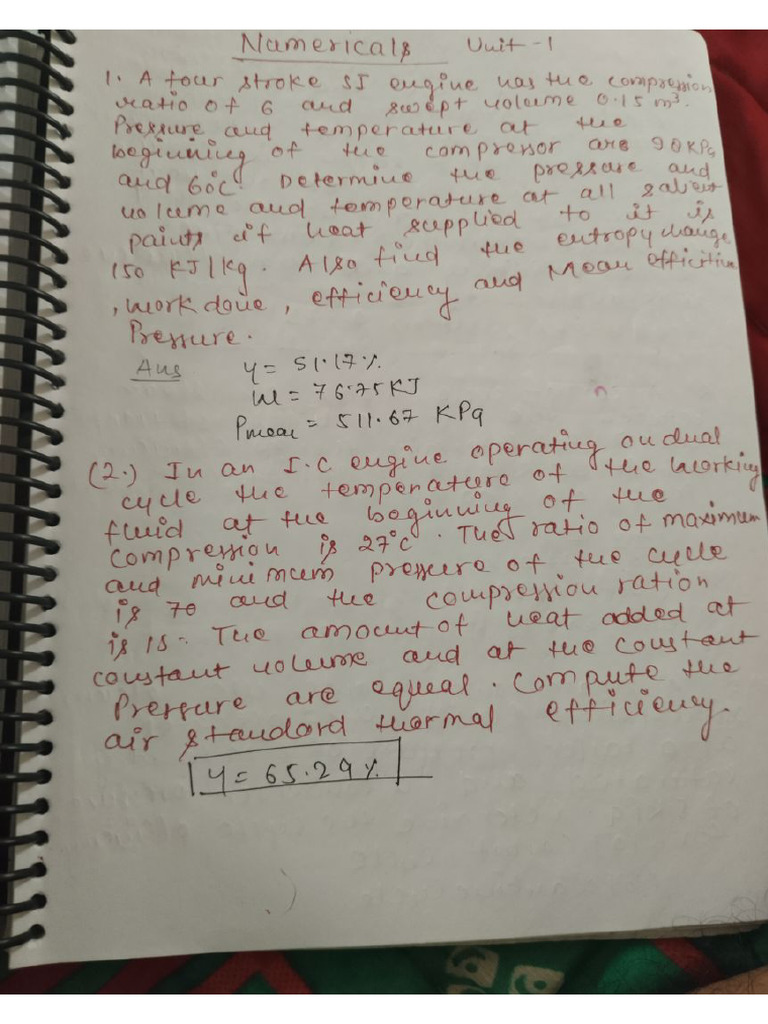 Numericals Unit-1
1. A four stroke SI engine has the compression
ratio of 6 and swept volume 0.15 m³.
Pressure and temperature at the
beginning of the compressor are 90 KPa
and 60°C. Determine the pressure and
volume and temperature at all salient
points if heat supplied to it is
150 KJ/kg. Also find the entropy change
, work done, efficiency and Mean
Pressure.
Ans η = 51.17%
W = 76.75 KJ
Pmean = 511.67 KPa
(2.) In an I.C engine operating on dual
cycle the temperature of the working
fluid at the beginning of the
compression is 27°C. The ratio of maximum
and minimum pressure of the cycle
is 70 and the compression ration
is 15. The amount of heat added at
constant volume and at the constant
Pressure are equal. compute the
air standard thermal efficiency.
η = 65.29%